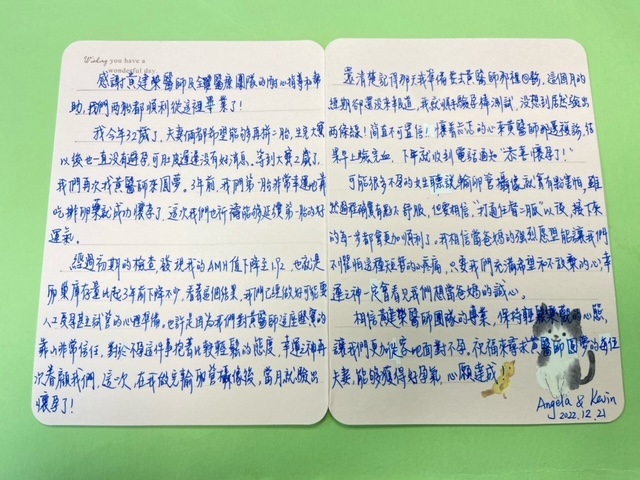 Wishing you have a
wonderful day.
感謝黃建榮醫師及全體醫療團隊的耐心指導和幫
助，我們兩胎都順利從這裡畢業了！
我今年32歲了，夫妻倆都希望能夠再拼二胎，生完大寶
以後也一直沒有避孕，可肚皮遲遲沒有好消息，等到大寶2歲了，
我們再次找黃醫師來圓夢。3年前，我們第一胎非常幸運地靠
吃排卵藥就成功懷孕了，這次我們也祈禱能夠延續第一胎的好
運氣。
經過初期的檢查發現我的AMH值下降至1.92，也就是
卵巢庫存量比起3年前下降不少，看著這個結果，我們已經做好可能要
人工受孕甚至試管的心理準備。也許是因為我們對黃醫師這座堅實的
靠山非常信任，對於不孕這件事抱著比較輕鬆的態度，幸運之神再
次眷顧我們，這一次，在我做完輸卵管攝影後，當月就驗出
懷孕了！
還清楚記得那天我準備要去黃醫師那裡回診，這個月的
經期卻還沒來報到，我就順手驗孕棒測試，沒想到居然驗出
兩條線！簡直不可置信！懷著忐忑的心來黃醫師那邊複診，結
果早上驗完血，下午就收到電話通知“恭喜懷孕了！”
可能很多不孕的女生聽說輸卵管攝影就會有點害怕，雖
然過程確實有點不舒服，但要相信，“打通任督二脈”以後，接下來
的每一步都會更加順利了。我相信當爸媽的強烈慾望能讓我們
不懼怕這種短暫的小疼痛，只要我們充滿希望和不放棄的心，幸
運之神一定會看見我們想當爸媽的誠心。
相信黃建榮醫師團隊的專業，保持輕鬆樂觀的心態，
讓我們更加從容地面對不孕，祝福來尋求黃醫師圓夢的每位
夫妻，能夠獲得好孕氣，心願達成！
Angela & Kevin
2022.12.21